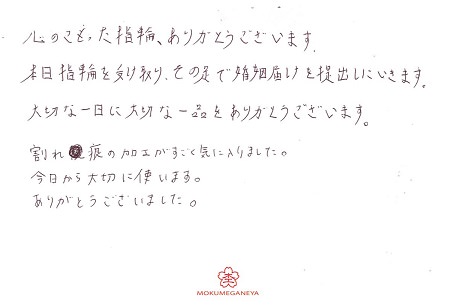 心のこもった指輪、ありがとうございます。
本日指輪を受け取り、その足で婚姻届けを提出しにいきます。
大切な一日に大切な一品をありがとうございます。
割れ痕の加工がすごく気に入りました。
今日から大切に使います。
ありがとうございました。
MOKUMEGANEYA